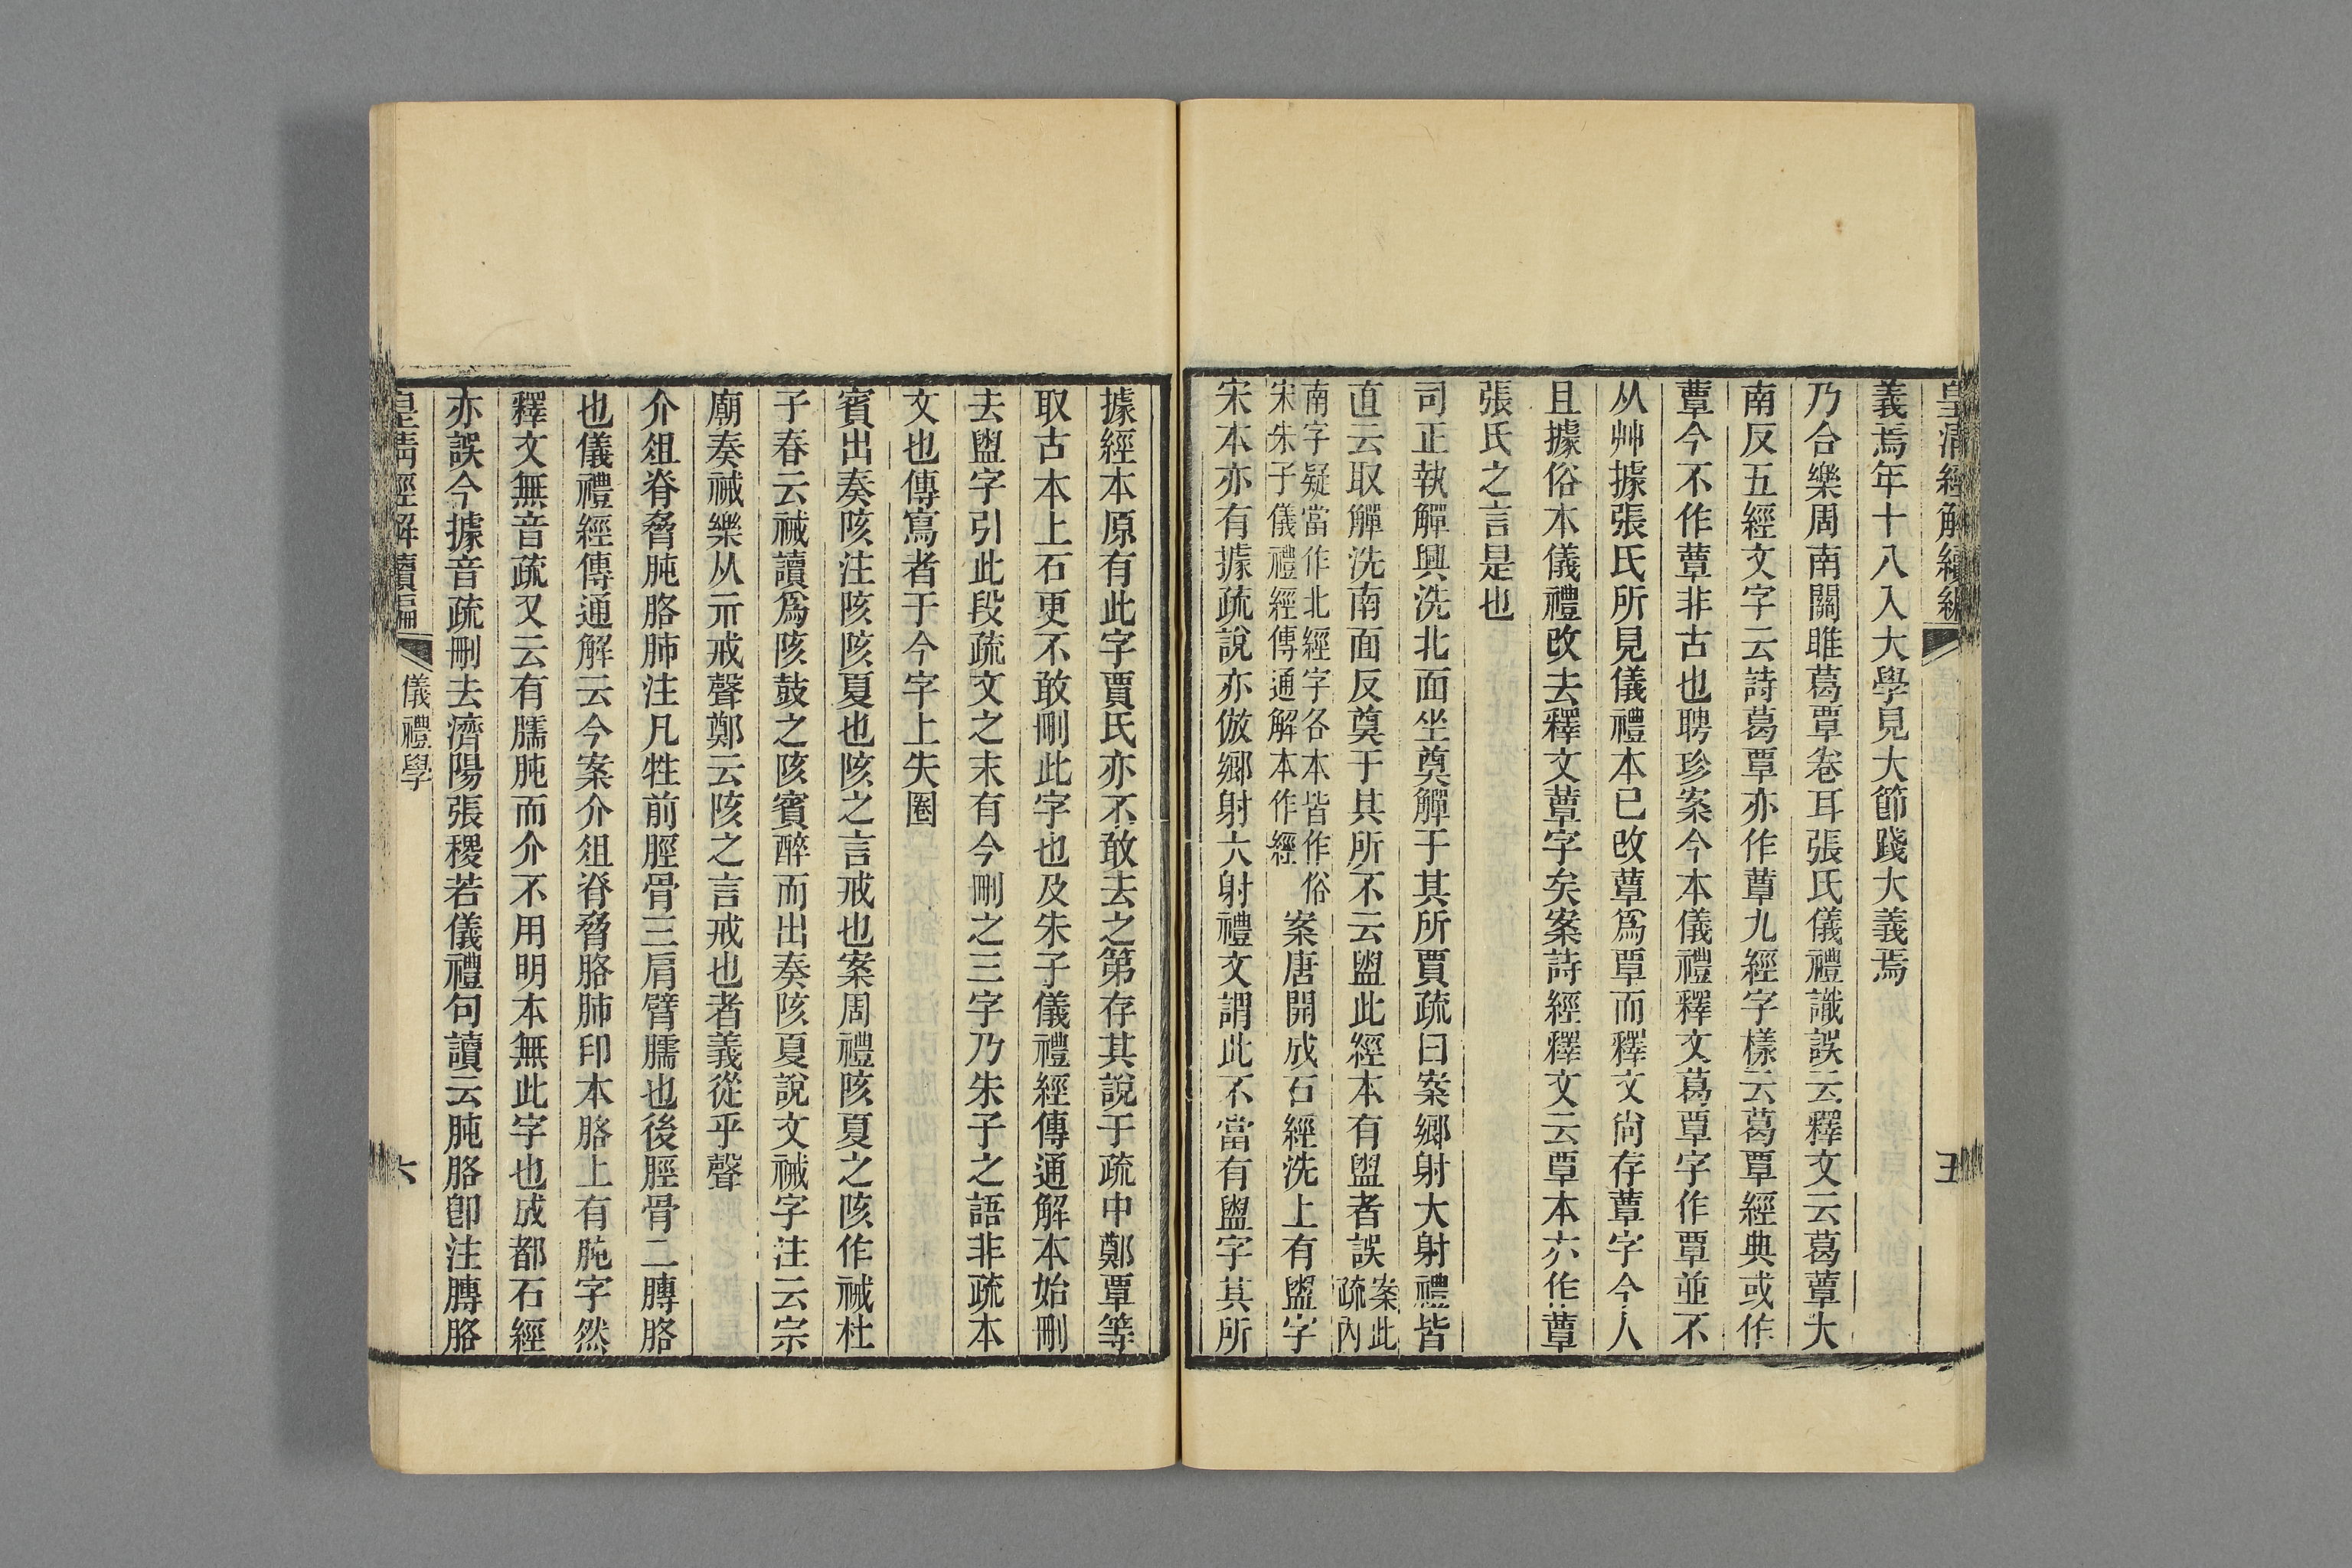 皇清經解續編
五
義焉年十八入大學見大節踐大義焉
乃合樂周南關雎葛覃卷耳張氏儀禮識誤云釋文云葛蕈大
南反五經文字云詩葛覃亦作蕈九經字樣云葛覃經典或作
蕈今不作蕈非古也聘珍案今本儀禮釋文葛覃字作覃並不
从艸據張氏所見儀禮本已改蕈爲覃而釋文尚存蕈字今人
且據俗本儀禮改去釋文蕈字矣案詩經釋文云覃本亦作蕈
張氏之言是也
司正執觶興洗北面坐奠觶于其所賈疏曰案鄉射大射禮皆
直云取觶洗南面反奠于其所不云盥此經本有盥者誤案此疏內
南字疑當作北經字各本皆作俗宋朱子儀禮經傳通解本作經案唐開成石經洗上有盥字
宋本亦有據疏說亦倣鄉射大射禮文謂此不當有盥字其所
據經本原有此字賈氏亦不敢去之第存其說于疏中鄭覃等
取古本上石更不敢刪此字也及朱子儀禮經傳通解本始刪
去盥字引此段疏文之末有今刪之三字乃朱子之語非疏本
文也傳寫者于今字上失圈
賓出奏陔注陔陔夏也陔之言戒也案周禮陔夏之陔作祴杜
子春云祴讀爲陔鼓之陔賓醉而出奏陔夏說文祴字注云宗
廟奏祴樂从示戒聲鄭云陔之言戒也者義從乎聲
介俎脊脅肫胳肺注凡牲前脛骨三肩臂臑也後脛骨二膞胳
也儀禮經傳通解云今案介俎脊脅胳肺印本胳上有肫字然
釋文無音疏又云有臑肫而介不用明本無此字也成都石經
亦誤今據音疏刪去濟陽張稷若儀禮句讀云肫胳卽注膞胳
皇清經解續編
儀禮學
六